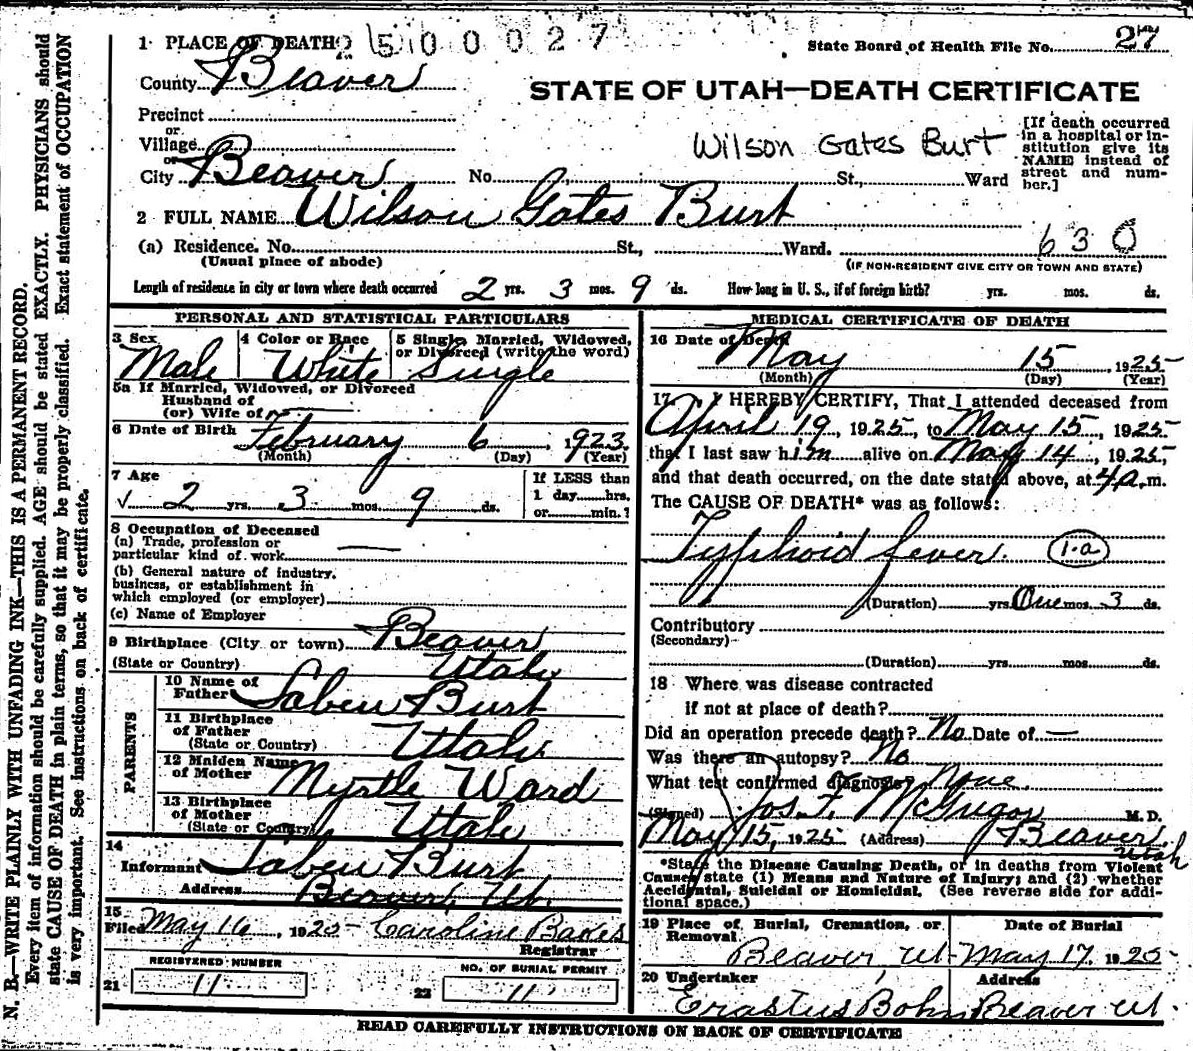 1 PLACE OF DEATH 2500027
State Board of Health File No. 27
County Beaver
STATE OF UTAH—DEATH CERTIFICATE
Precinct
or
Village
or
City Beaver No. St., Ward
Wilson Gates Burt
[If death occurred in a hospital or institution give its NAME instead of street and number.]
2 FULL NAME Wilson Gates Burt
(a) Residence. No. St., Ward. 630
(Usual place of abode)
(IF NON-RESIDENT GIVE CITY OR TOWN AND STATE)
Length of residence in city or town where death occurred 2 yrs. 3 mos. 9 ds. How long in U. S., if of foreign birth? yrs. mos. ds.
PERSONAL AND STATISTICAL PARTICULARS
3 Sex Male
4 Color or Race White
5 Single, Married, Widowed, or Divorced (write the word) Single
5a If Married, Widowed, or Divorced
Husband of
(or) Wife of
6 Date of Birth February 6, 1923
(Month) (Day) (Year)
7 Age
√ 2 yrs. 3 mos. 9 ds.
If LESS than
1 day hrs.
or min.?
8 Occupation of Deceased
(a) Trade, profession or
particular kind of work —
(b) General nature of industry,
business, or establishment in
which employed (or employer)
(c) Name of Employer
9 Birthplace (City or town) Beaver
(State or Country) Utah
PARENTS
10 Name of
Father Burt
11 Birthplace
of Father
(State or Country) Utah
12 Maiden Name
of Mother Myrtle Ward
13 Birthplace
of Mother
(State or Country) Utah
14
Informant Burt
Address Beaver, Ut.
15
Filed May 16, 1925 Caroline
Registrar
REGISTERED NUMBER
21 11
NO. OF BURIAL PERMIT
22 11
MEDICAL CERTIFICATE OF DEATH
16 Date of Death May 15, 1925
(Month) (Day) (Year)
17 I HEREBY CERTIFY, That I attended deceased from
April 19, 1925, to May 15, 1925
that I last saw him alive on May 14, 1925,
and that death occurred, on the date stated above, at 4 a.m.
The CAUSE OF DEATH* was as follows:
Typhoid fever. 1-a
(Duration) yrs. One mos. 3 ds.
Contributory
(Secondary)
(Duration) yrs. mos. ds.
18 Where was disease contracted
if not at place of death?
Did an operation precede death? No Date of —
Was there an autopsy? No
What test confirmed diagnosis? None.
(Signed) Jos. F. McGregor M. D.
May 15, 1925 (Address) Beaver, Utah
*State the Disease Causing Death, or in deaths from Violent
Causes state (1) Means and Nature of Injury; and (2) whether
Accidental, Suicidal or Homicidal. (See reverse side for addi-
tional space.)
19 Place of Burial, Cremation, or Removal Date of Burial
Beaver Ut May 17, 1925
20 Undertaker Address
Erastus Bohn Beaver Ut.
READ CAREFULLY INSTRUCTIONS ON BACK OF CERTIFICATE
N. B.—WRITE PLAINLY WITH UNFADING INK—THIS IS A PERMANENT RECORD.
Every item of information should be carefully supplied. AGE should be stated EXACTLY. PHYSICIANS should
state CAUSE OF DEATH in plain terms, so that it may be properly classified. Exact statement of OCCUPATION
is very important. See instructions on back of certificate.